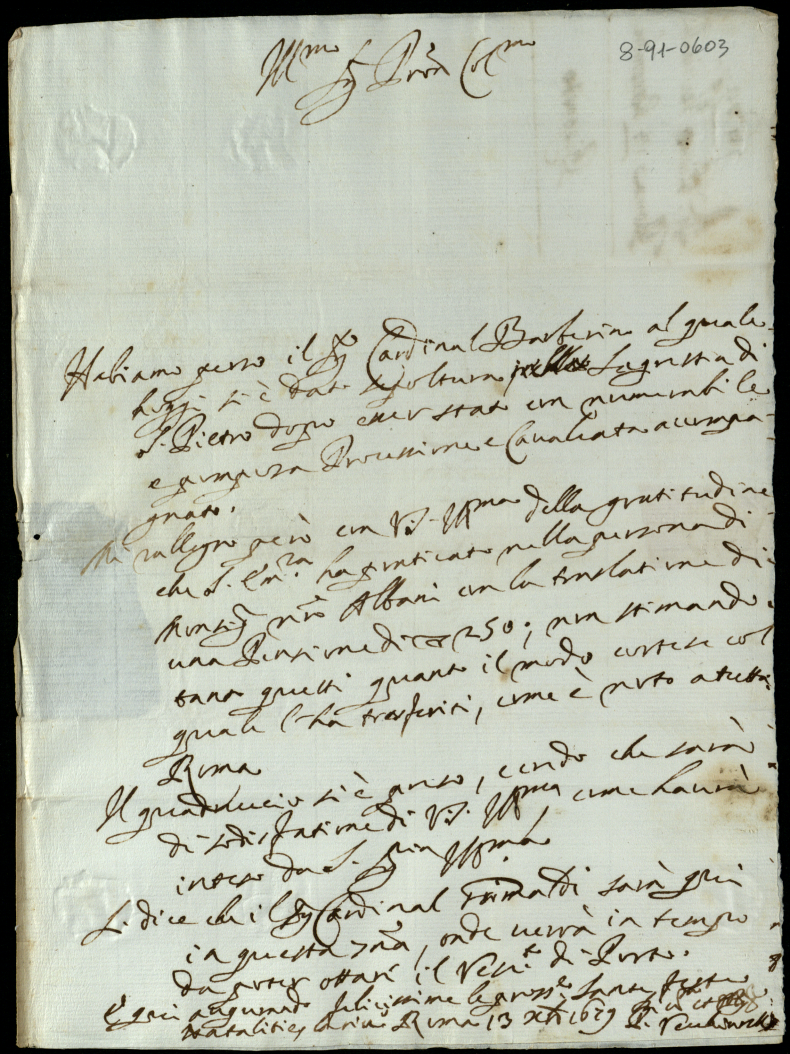 8-91-0603
Ill.mo
Sig. Pron Col.mo
Habiamo perso il Sig. Cardinal Barberino al quale
hoggi si è dato sepoltura nella Sagrestia di
S. Pietro dopo esser stato con numerabile
e pomposa Processione e Cavalcata acompa-
gnato.
Mi rallegro però con V.S. Ill.ma della gratitudine
che S. Em.za ha praticato nella persona di
Monsig. nro Albani con la traslatione di
una Pensione di 250; non stimando
tanto questi quanto il modo cortese col
quale l'ha trasferiti, come è noto a tutta
Roma
Il quadruccio si è preso, credo che sarà
di sodisfatione di V.S. Ill.ma come haurà
inteso da S. Ill.ma
Si dice che il Sig. Cardinal Grimaldi sarà qui
in questa, onde verrà in tempo
da poter ottare il Vesc.to di Porto.
E qui augurando felicissime le pross.e Sante feste
Natalitie Roma 13 Xbre 1679